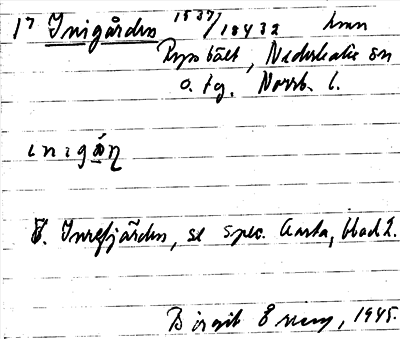 17 Inigården 1537/18432 hmn
Rynbält, Nederkalix sn
o. tg. Norrb. l.
ınıgǻn
8. Inrefjärden, se spec. karta, blad 2.
Birgit Öreny, 1945.